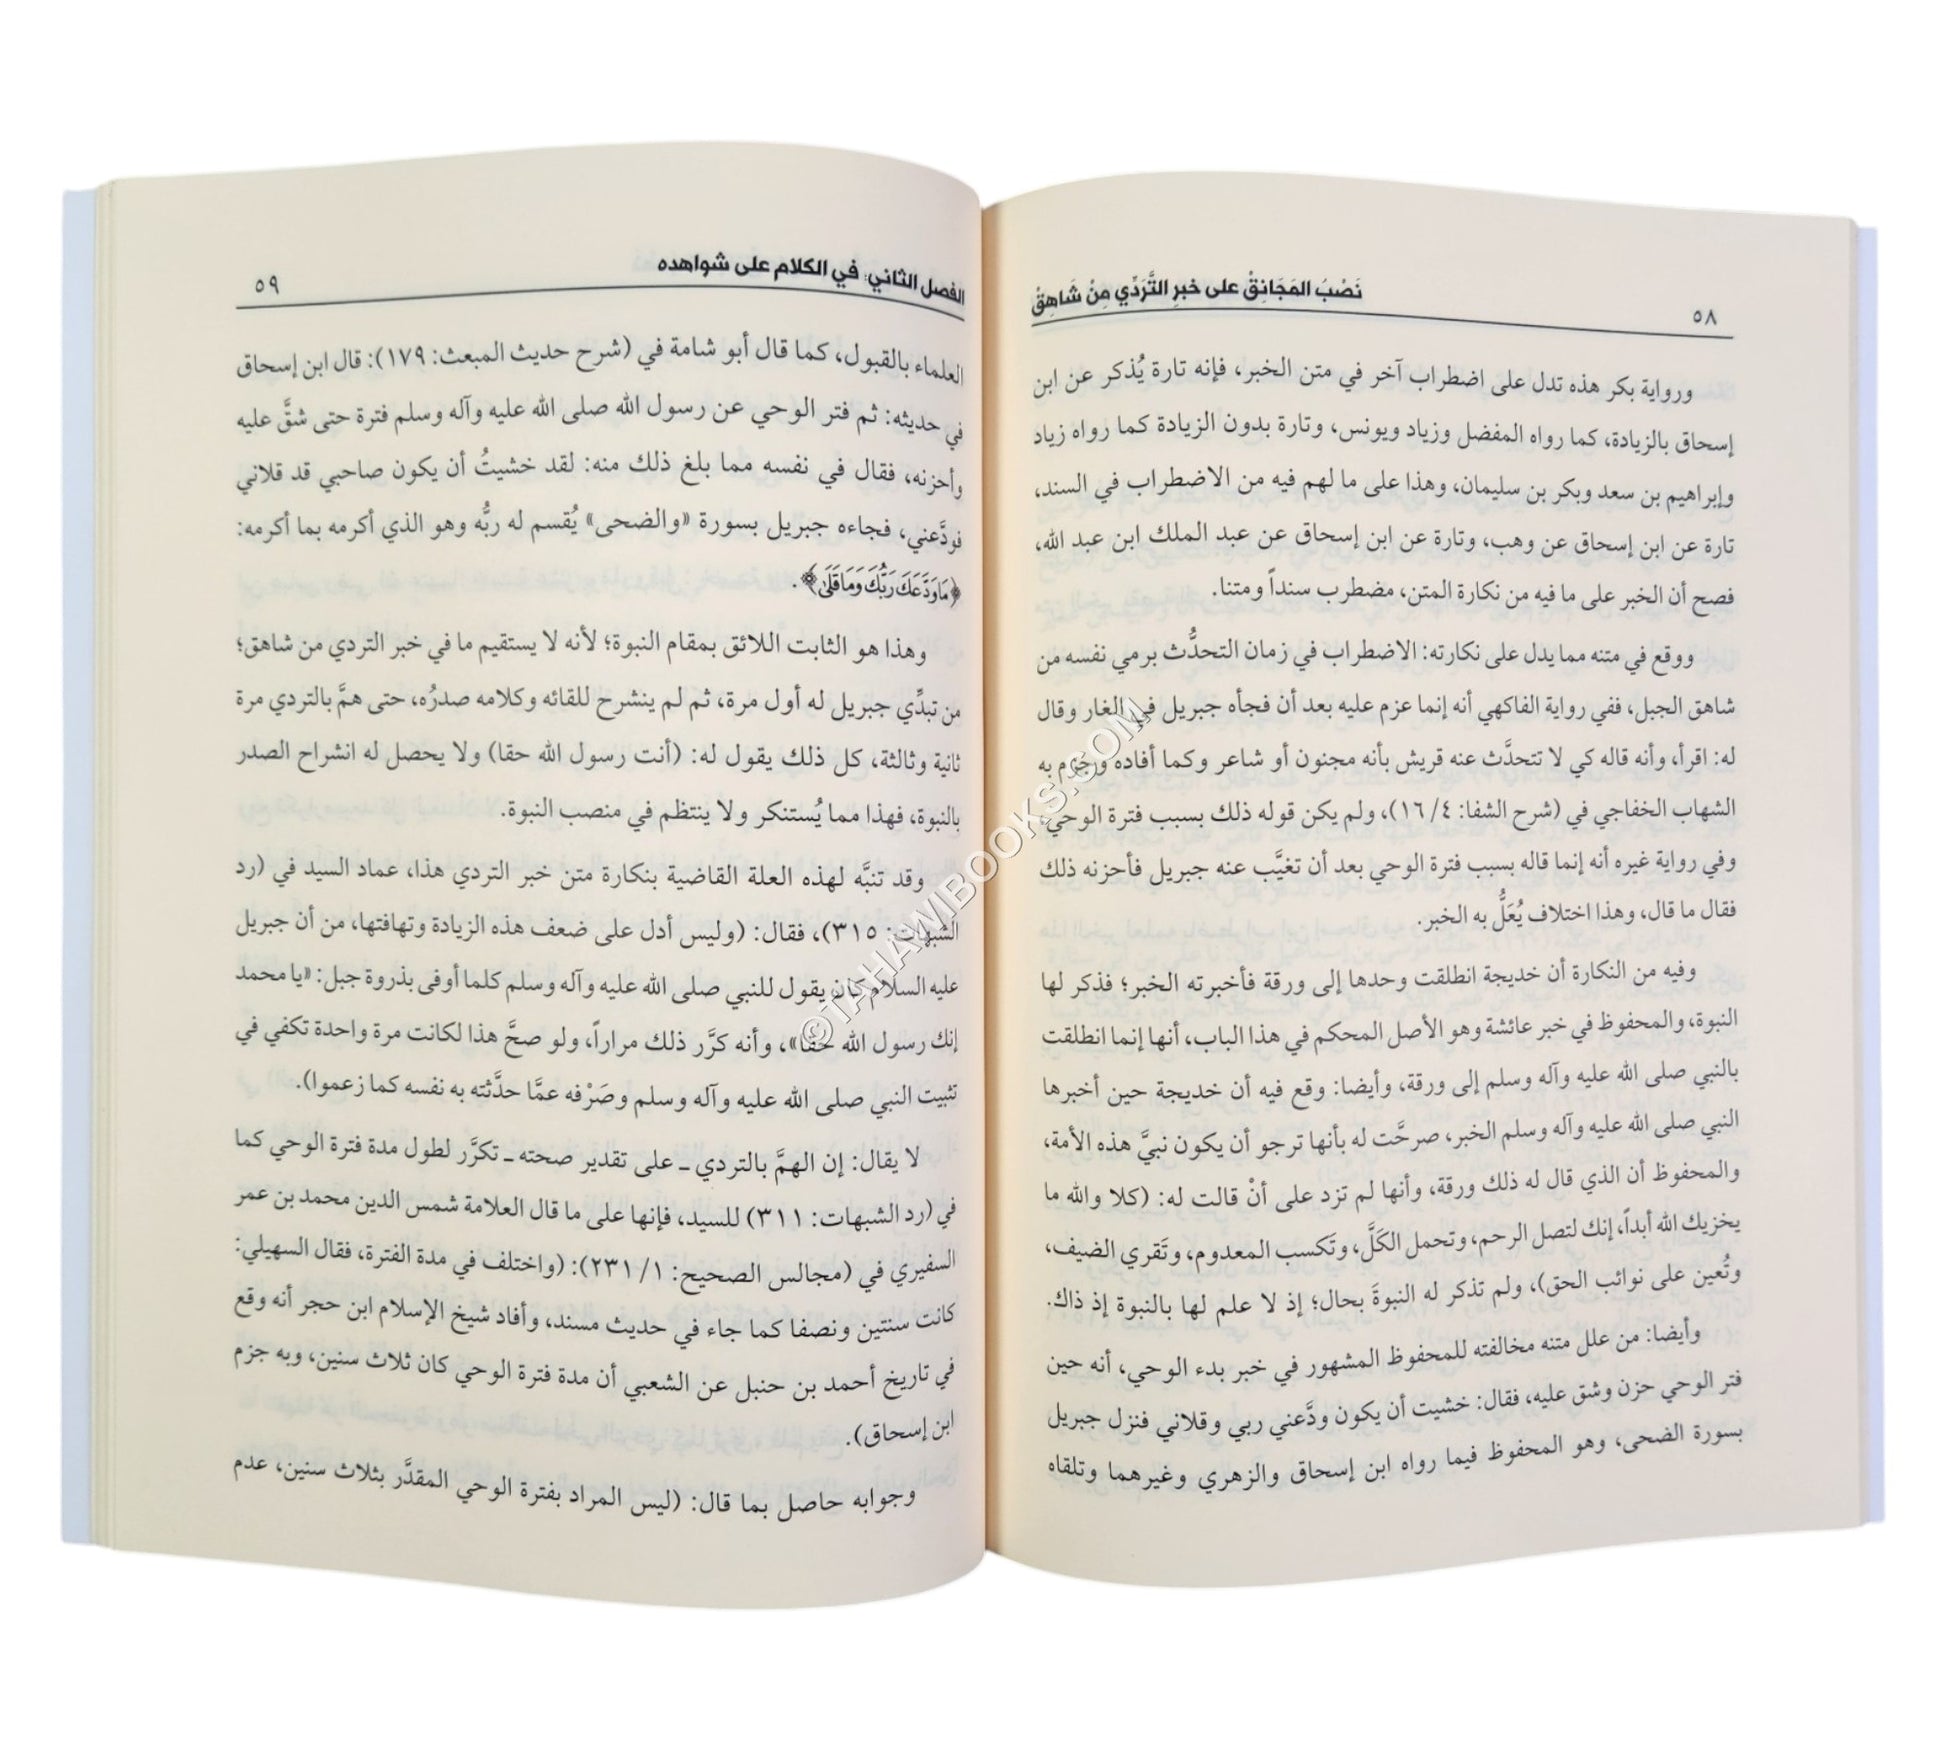 نَصْبُ المَجَانِقْ على خبرِ التَّرَدِّي مِنْ شَاهِقْ
٥٨
ورواية بكر هذه تدل على اضطراب آخر في متن الخبر، فإنه تارة يُذكر عن ابن
إسحاق بالزيادة، كما رواه المفضل وزياد ويونس، وتارة بدون الزيادة كما رواه زياد
وإبراهيم بن سعد وبكر بن سليمان، وهذا على ما لهم فيه من الاضطراب في السند،
تارة عن ابن إسحاق عن وهب، وتارة عن ابن إسحاق عن عبد الملك ابن عبد الله،
فصح أن الخبر على ما فيه من نكارة المتن، مضطرب سنداً ومتنا.
ووقع في متنه مما يدل على نكارته: الاضطراب في زمان التحدُّث برمي نفسه من
شاهق الجبل، ففي رواية الفاكهي أنه إنما عزم عليه بعد أن فجأه جبريل في الغار وقال
له: اقرأ، وأنه قاله كي لا تتحدَّث عنه قريش بأنه مجنون أو شاعر وكما أفاده وجزم به
الشهاب الخفاجي في (شرح الشفا: ٤/ ١٦)، ولم يكن قوله ذلك بسبب فترة الوحي،
وفي رواية غيره أنه إنما قاله بسبب فترة الوحي بعد أن تغيَّب عنه جبريل فأحزنه ذلك
فقال ما قال، وهذا اختلاف يُعَلُّ به الخبر.
وفيه من النكارة أن خديجة انطلقت وحدها إلى ورقة فأخبرته الخبر؛ فذكر لها
النبوة، والمحفوظ في خبر عائشة وهو الأصل المحكم في هذا الباب، أنها إنما انطلقت
بالنبي صلى الله عليه وآله وسلم إلى ورقة، وأيضا: وقع فيه أن خديجة حين أخبرها
النبي صلى الله عليه وآله وسلم الخبر، صرحَّت له بأنها ترجو أن يكون نبيَّ هذه الأمة،
والمحفوظ أن الذي قال له ذلك ورقة، وأنها لم تزد على أنْ قالت له: (كلا والله ما
يخزيك الله أبداً، إنك لتصل الرحم، وتحمل الكَلَّ، وتَكسب المعدوم، وتَقري الضيف،
وتُعين على نوائب الحق)، ولم تذكر له النبوةَ بحال؛ إذ لا علم لها بالنبوة إذ ذاك.
وأيضا: من علل متنه مخالفته للمحفوظ المشهور في خبر بدء الوحي، أنه حين
فتر الوحي حزن وشق عليه، فقال: خشيت أن يكون ودَّعني ربي وقلاني فنزل جبريل
بسورة الضحى، وهو المحفوظ فيما رواه ابن إسحاق والزهري وغيرهما وتلقاه
الفصل الثاني: في الكلام على شواهده
٥٩
العلماء بالقبول، كما قال أبو شامة في (شرح حديث المبعث: ١٧٩): قال ابن إسحاق
في حديثه: ثم فتر الوحي عن رسول الله صلى الله عليه وآله وسلم فترة حتى شقَّ عليه
وأحزنه، فقال في نفسه مما بلغ ذلك منه: لقد خشيتُ أن يكون صاحبي قد قلاني
فودَّعني، فجاءه جبريل بسورة «والضحى» يُقسم له ربُّه وهو الذي أكرمه بما أكرمه:
﴿مَا وَدَّعَكَ رَبُّكَ وَمَا قَلَىٰ﴾.
وهذا هو الثابت اللائق بمقام النبوة؛ لأنه لا يستقيم ما في خبر التردي من شاهق؛
من تبدِّي جبريل له أول مرة، ثم لم ينشرح للقائه وكلامه صدرُه، حتى همَّ بالتردي مرة
ثانية وثالثة، كل ذلك يقول له: (أنت رسول الله حقا) ولا يحصل له انشراح الصدر
بالنبوة، فهذا مما يُستنكر ولا ينتظم في منصب النبوة.
وقد تنبَّه لهذه العلة القاضية بنكارة متن خبر التردي هذا، عماد السيد في (رد
الشبهات: ٣١٥)، فقال: (وليس أدل على ضعف هذه الزيادة وتهافتها، من أن جبريل
عليه السلام كان يقول للنبي صلى الله عليه وآله وسلم كلما أوفى بذروة جبل: «يا محمد
إنك رسول الله حقا»، وأنه كرَّر ذلك مراراً، ولو صحَّ هذا لكانت مرة واحدة تكفي في
تثبيت النبي صلى الله عليه وآله وسلم وصَرْفه عمَّا حدَّثته به نفسه كما زعموا).
لا يقال: إن الهمَّ بالتردي ـ على تقدير صحته ـ تكرَّر لطول مدة فترة الوحي كما
في (رد الشبهات: ٣١١) للسيد، فإنها على ما قال العلامة شمس الدين محمد بن عمر
السفيري في (مجالس الصحيح: ١/ ٢٣١): (واختلف في مدة الفترة، فقال السهيلي:
كانت سنتين ونصفا كما جاء في حديث مسند، وأفاد شيخ الإسلام ابن حجر أنه وقع
في تاريخ أحمد بن حنبل عن الشعبي أن مدة فترة الوحي كان ثلاث سنين، وبه جزم
ابن إسحاق).
وجوابه حاصل بما قال: (ليس المراد بفترة الوحي المقدَّر بثلاث سنين، عدم
©TAHAWIBOOKS.COM